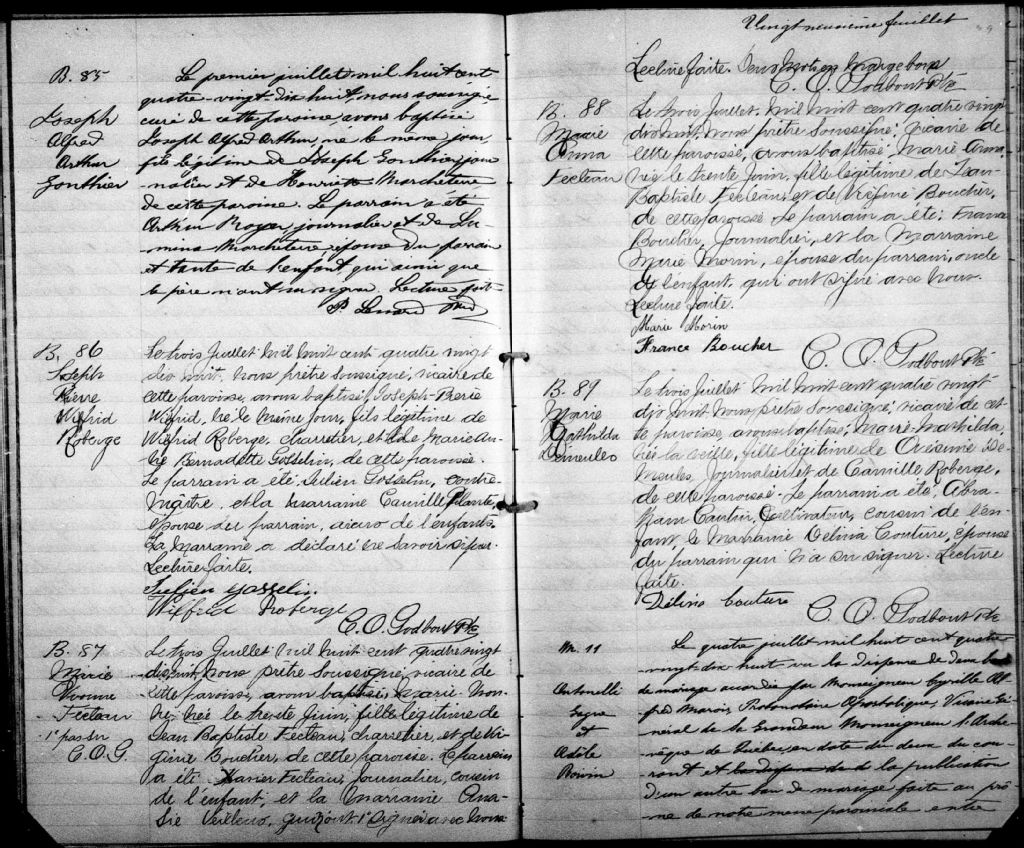 B. 85
Joseph
Alfred
Arthur
Gonthier
Le premier juillet mil huit cent
quatre-vingt-dix huit, nous soussigné
curé de cette paroisse avons baptisé
Joseph Alfred Arthur, né le même jour,
fils légitime de Joseph Gonthier, jour
nalier et de Henriette Marcheterre,
de cette paroisse. Le parrain a été
Arthur Royer, journalier et de Lu-
mina Marcheterre épouse du parrain
et tante de l'enfant, qui ainsi que
le père n'ont su signer. Lecture faite
B. 86
Joseph
Pierre
Wilfrid
Roberge
Le trois Juillet mil huit cent quatre vingt
dix huit, nous prêtre soussigné, vicaire de
cette paroisse, avons baptisé, Joseph-Pierre
Wilfrid, né le même jour, fils légitime de
Wilfrid Roberge, charretier, et de Marie An-
Bernadette Gosselin, de cette paroisse.
Le parrain a été Julien Gosselin, contre-
maître, et la marraine Camille Plante,
épouse du parrain, aieux de l'enfant.
La Marraine a déclaré ne savoir signer.
Lecture faite.
Julien Gosselin
Wilfrid Roberge
C. O. Godbout Ptre
B. 87
Marie
Yvonne
Fecteau
C. O. G.
Le trois Juillet mil huit cent quatre vingt
dix huit, nous prêtre soussigné, vicaire de
cette paroisse, avons baptisé, Marie Yvon-
ne, née le trente Juin, fille légitime de
Jean Baptiste Fecteau, charretier, et de Vi-
ginie Boucher, de cette paroisse. Le parrain
a été Xavier Fecteau, Journalier, cousin
de l'enfant, et la Marraine Ana-
sie Veilleux, qui ont signé avec nous
Vingt neuvième feuillet
Lecture faite. mot en marge bon
C. O. Godbout Ptre
B. 88
Marie
Anna
Fecteau
Le trois Juillet mil huit cent quatre vingt
dix huit, nous prêtre soussigné, vicaire de
cette paroisse, avons baptisé, Marie Anna,
née le trente Juin, fille légitime de Jean-
Baptiste Fecteau et de Virginie Boucher,
de cette paroisse. Le parrain a été, France
Boucher, Journalier, et la Marraine
Marie Morin, épouse du parrain, oncle
de l'enfant, qui ont signé avec nous.
Lecture faite.
Marie Morin
France Boucher
C. O. Godbout Ptre
B. 89
Marie
Mathilda
Demeules
Le trois Juillet mil huit cent quatre vingt
dix huit nous prêtre soussigné, vicaire de cet-
te paroisse, avons baptisé, Marie-Mathilda,
née la veille, fille légitime de Onésime De-
meules Journalier et de Camille Roberge,
de cette paroisse. Le parrain a été, Abra-
ham Couture, Cultivateur, cousin de l'en-
fant, la Marraine Delina Couture, épouse
du parrain qui n'a su signer. Lecture
faite.
Délina Couture
C. O. Godbout Ptre
M. 11
Antonelli
et
Adèle
Le quatre juillet mil huit cent quatre
vingt dix huit vu la dispense de deux bans
de mariage accordée par Monseigneur Cyrille Al-
fred Marois, Protonotaire Apostolique, Vicaire Gé-
néral de sa Grandeur Monseigneur l'Arche-
vêque de Québec, en date du deux du cou-
rant et de la publication
d'un autre ban de mariage faite au prô-
ne de notre messe paroissiale entre